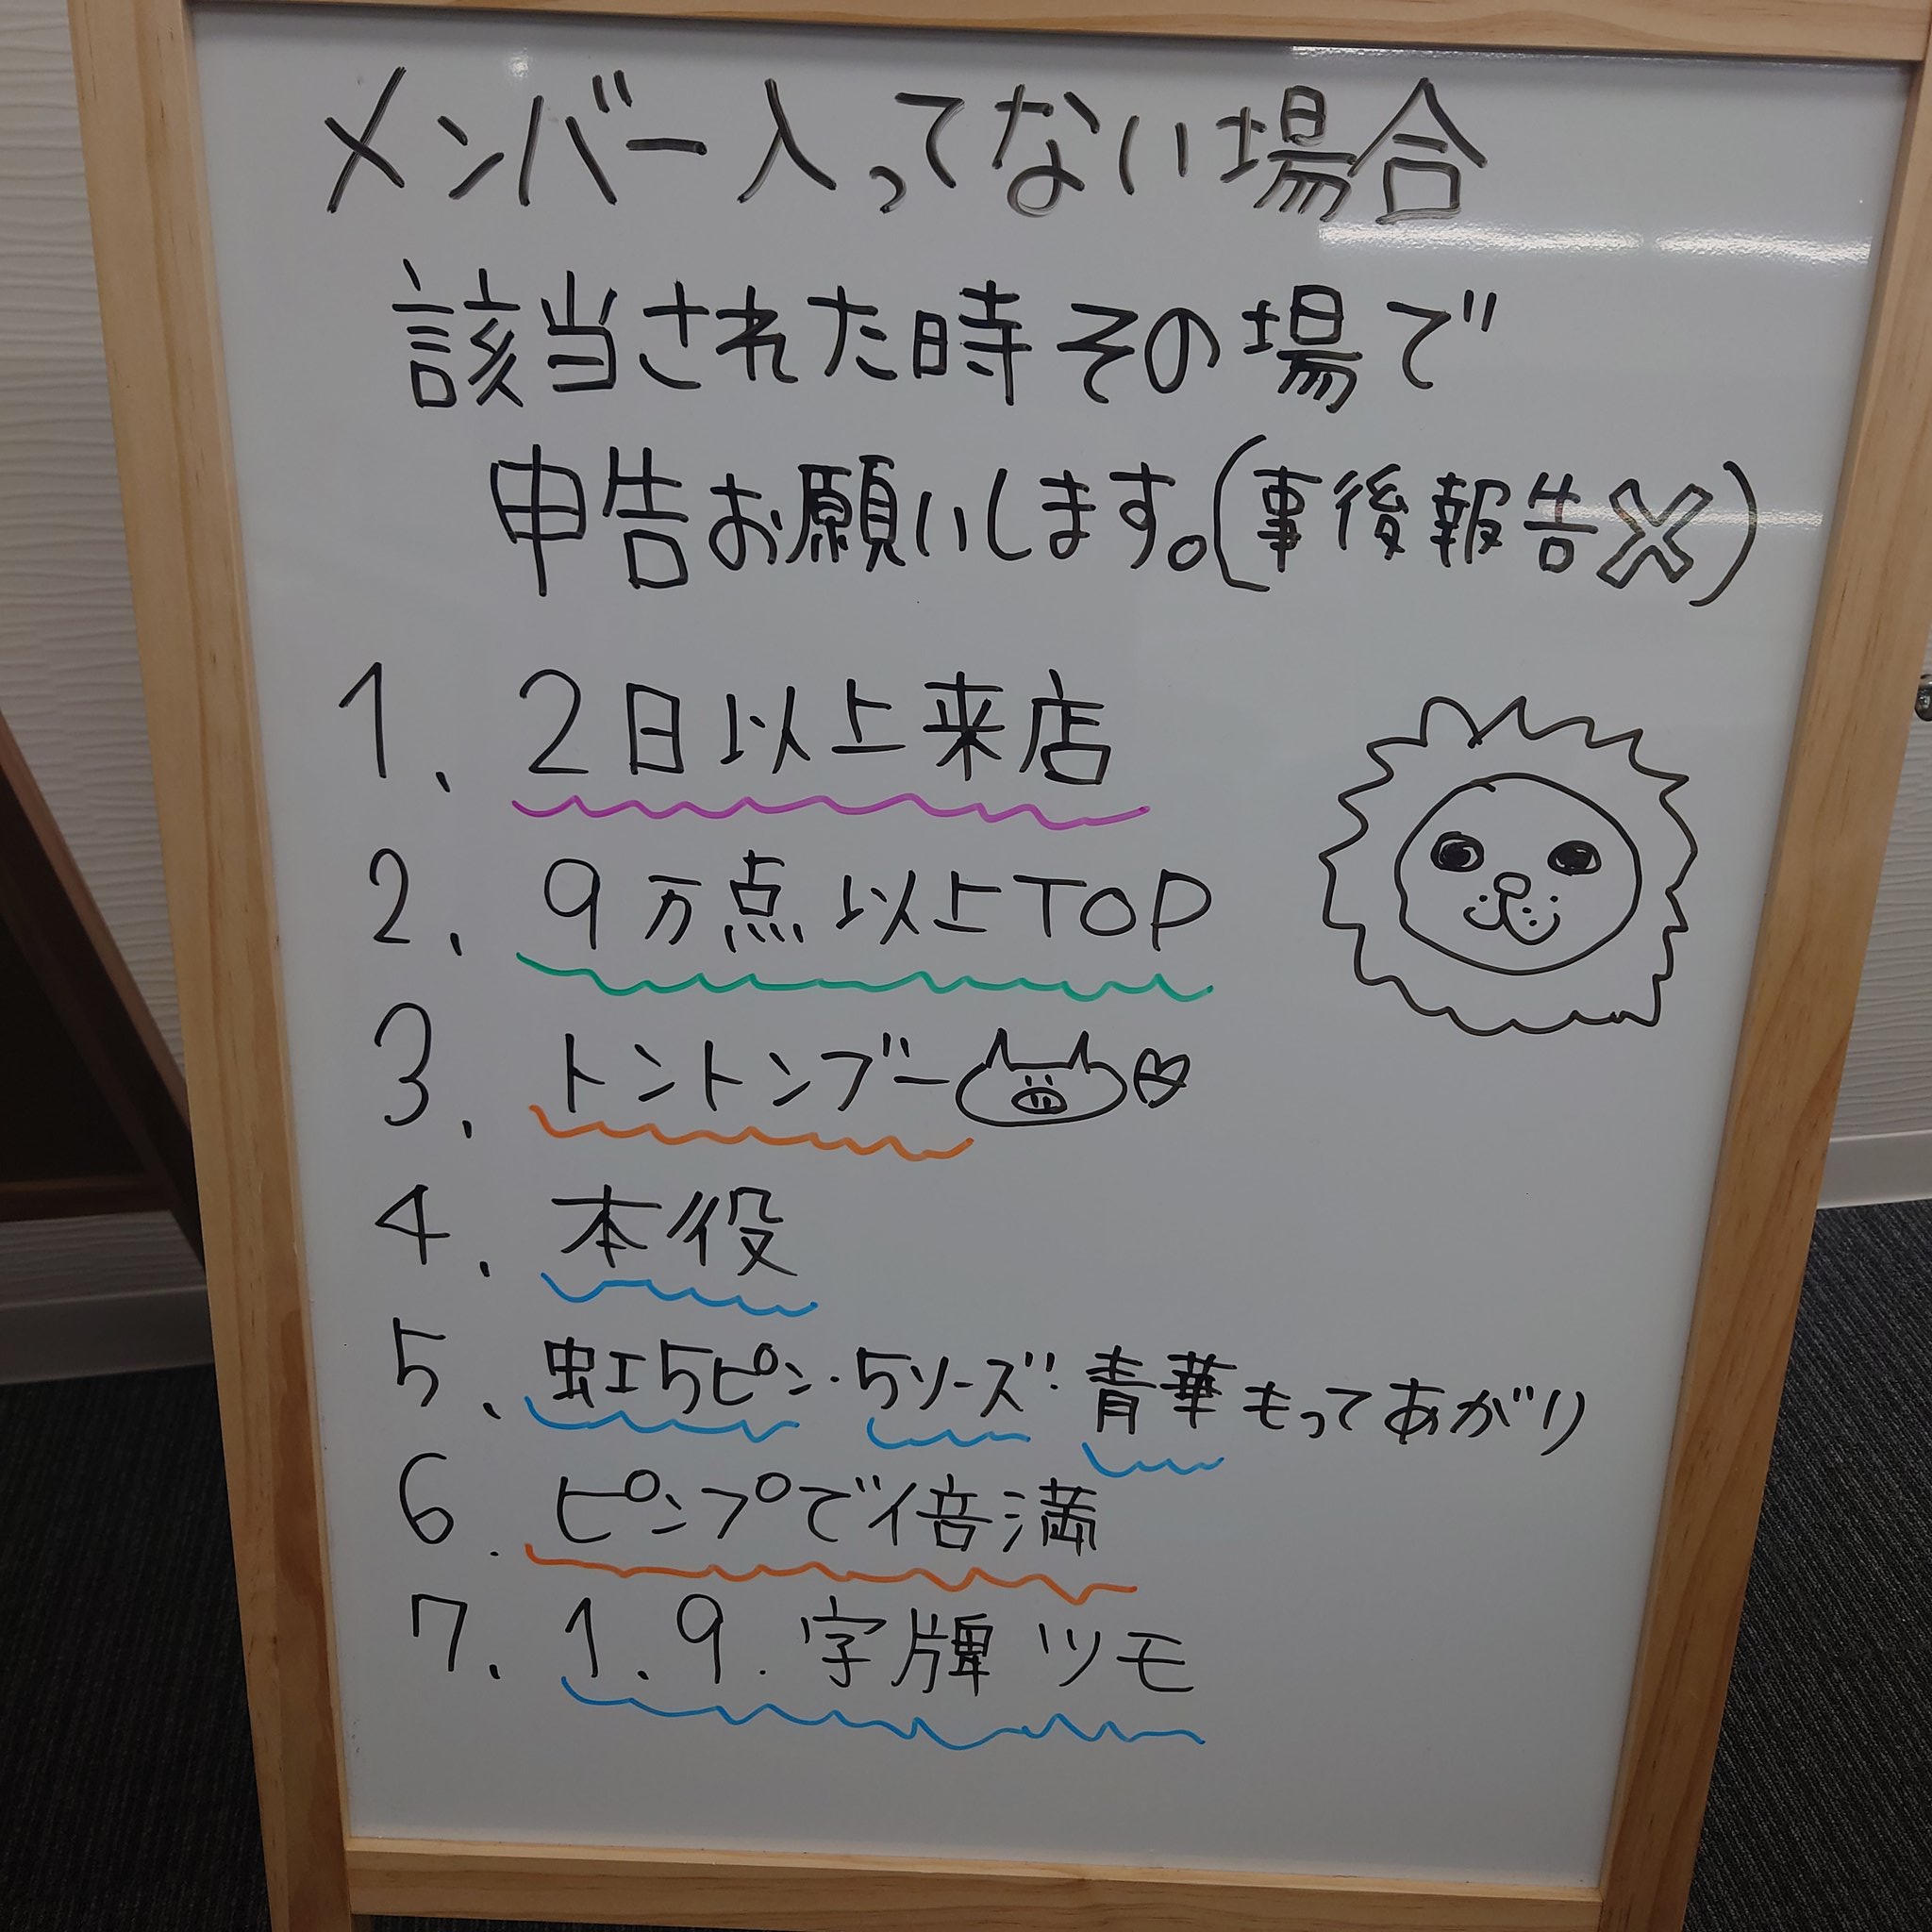 メンバー入ってない場合
該当された時その場で
申告お願いします。(事後報告✕)
1、2日以上来店
2、9万点以上TOP
3、トントンブー
4、本役
5、虹5ピン・5ソーズ・青華もってあがり
6、ピンプで倍満
7、1.9.字牌ツモ